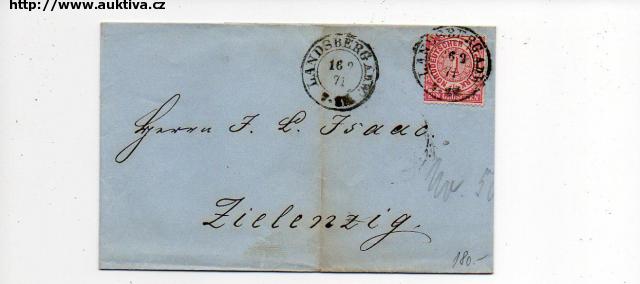 www.auktiva.cz
LANDSBERG A.D.W.
16 2
71
LANDSBERG A.D.W.
71
Herrn J. L. Isaac.
No 50
Zielenzig.
180.-